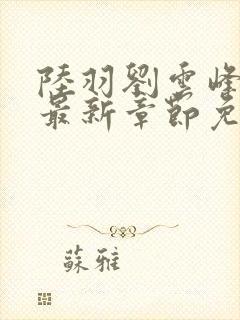 陸羽劉雲峰
最新章節免
蘇雅